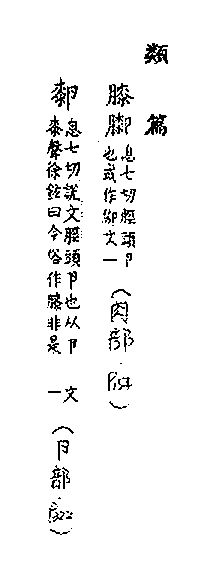 類篇
膝 息七切脛頭卪
也或作 文一 (肉部·)
厀 息七切說文脛頭卪也从卪
桼聲徐鉉曰今俗作膝非是 文一 (卪部·)